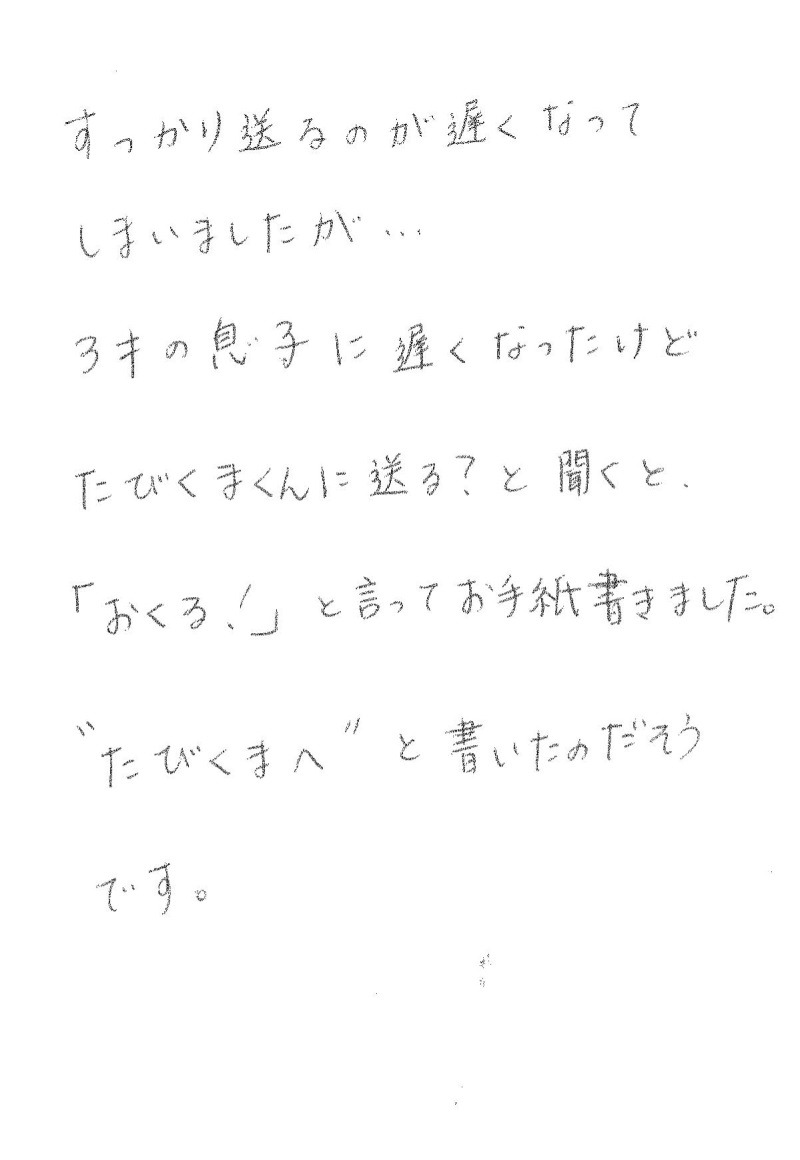 すっかり送るのが遅くなって
しまいましたが…
3才の息子に遅くなったけど
たびくまくんに送る?と聞くと、
「おくる!」と言ってお手紙書きました。
"たびくまへ"と書いたのだそう
です。